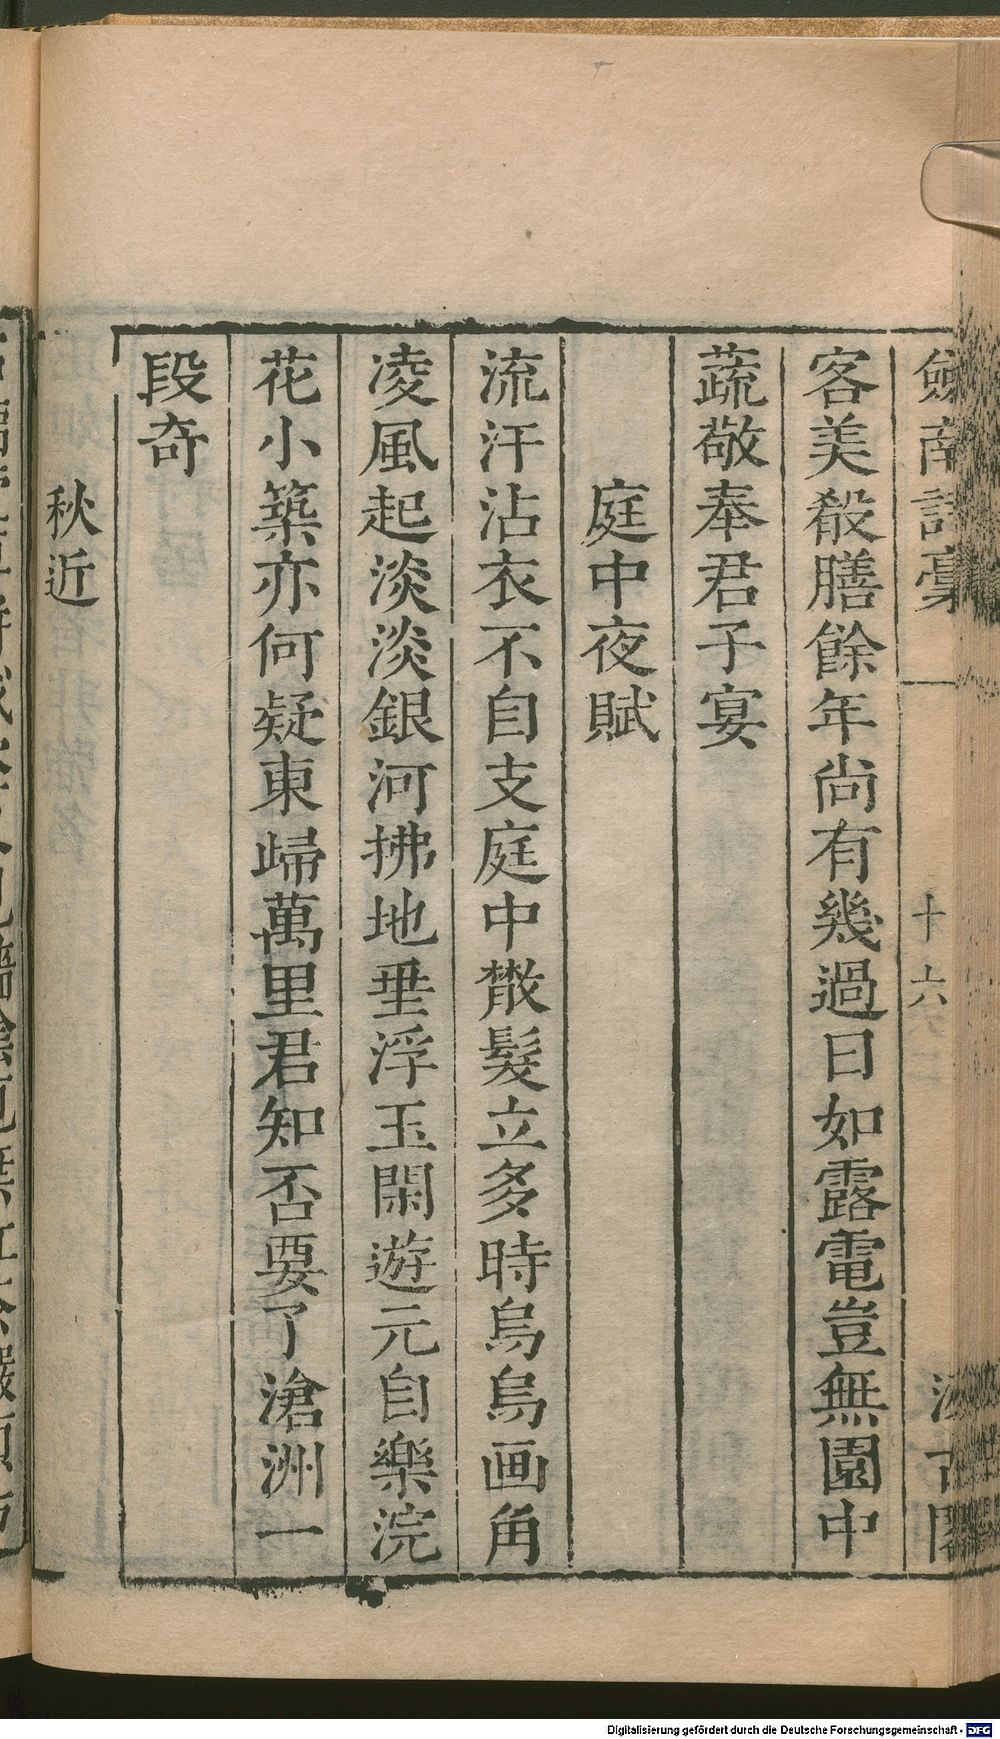 劍南詩稾
十六
汲古閣
客美殽膳餘年尚有幾過日如露電豈無園中
蔬敬奉君子宴
庭中夜賦
流汗沾衣不自支庭中散髮立多時烏烏画角
凌風起淡淡銀河拂地垂浮玉閑遊元自樂浣
花小築亦何疑東歸萬里君知否要了滄洲一
段奇
秋近
Digitalisierung gefördert durch die Deutsche Forschungsgemeinschaft - DFG